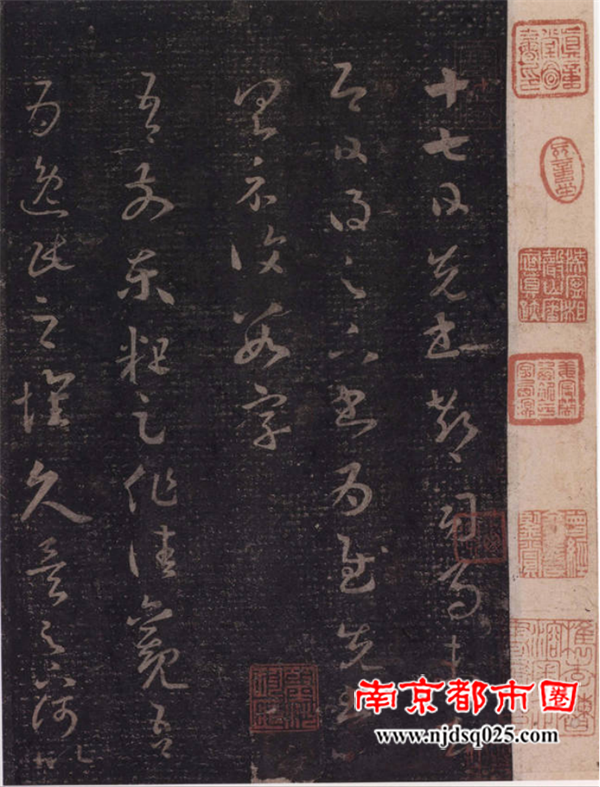 十七日先書郗司馬未去
即日得足下書為慰先書以
具示復數字
吾前東粗足作佳觀吾
為逸民之懷久矣足下何以
南京都市圈
www.njdsq025.com